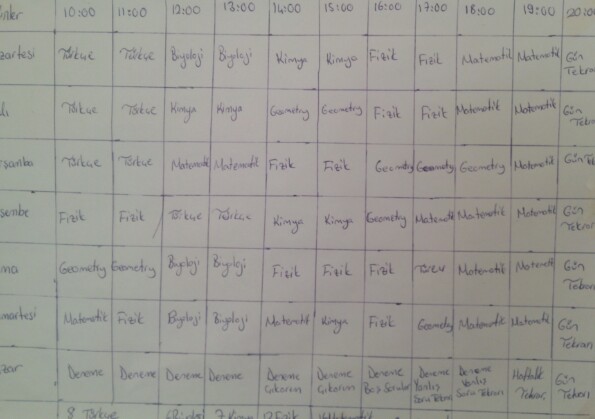 nler 10:00 11:00 12:00 13:00 14:00 15:00 16:00 17:00 18:00 19:00 20:00
zartesi Türkçe Türkçe Biyoloji Biyoloji Kimya Kimya Fizik Fizik Matematik Matematik Gün
Tekrarı
Türkçe Türkçe Kimya Kimya Geometry Geometry Fizik Fizik Matematik Matematik Gün
Tekrarı
rşamba Türkçe Türkçe Matematik Matematik Fizik Fizik Geometry Geometry Geometry Matematik Gün
şembe Fizik Fizik Türkçe Türkçe Kimya Kimya Geometry Matematik Matematik Matematik Gün
Tekrarı
ma Geometry Geometry Biyoloji Biyoloji Fizik Fizik Fizik Matematik Matematik Gün
Tekrarı
martesi Matematik Fizik Biyoloji Biyoloji Matematik Kimya Fizik Geometry Matematik Matematik Gün
Tekrarı
zar Deneme Deneme Deneme Deneme Deneme Deneme Deneme Deneme Deneme Haftalık Gün
Çıkarım Çıkarım Boş Sorular Yanlış Yanlış Tekrar Tekrarı
Soru Tekrarı Soru Tekrarı
8 Türkçe 7 Kimya 12 Fizik